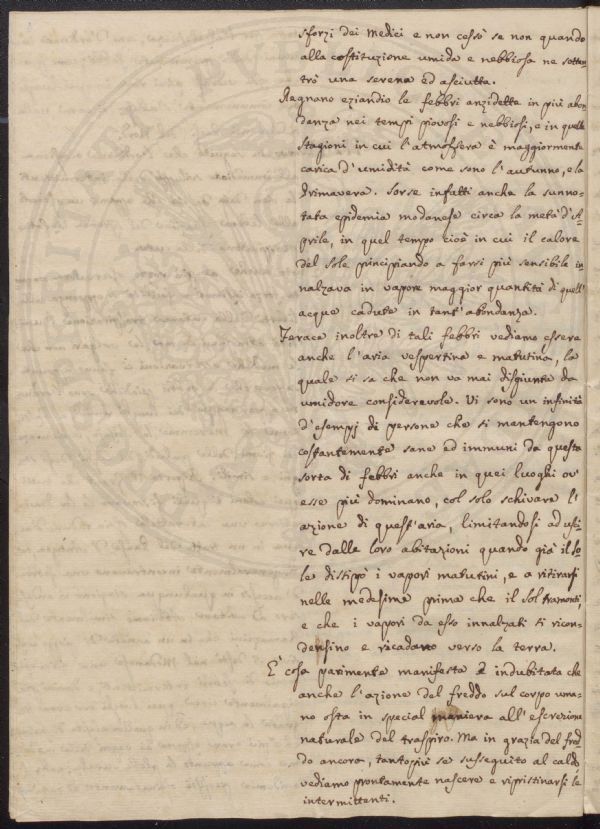 sforzi dei Medici e non cessò se non quando
alla costituzione umida e nebbiosa ne sotten
trò una serena ed asciutta.
Regnano eziandio le febbri anzidette in più abon
danza nei tempi piovosi e nebbiosi, e in quelle
stagioni in cui l'atmosfera è maggiormente
carica d'umidità come sono l'autunno, e la
Primavera. Sorse infatti anche la sunno-
tata epidemia modanese circa la metà d'A-
prile, in quel tempo cioè in cui il calore
del sole principiando a farsi più sensibile in
nalzava in vapore maggior quantità di quell'
acque cadute in tant'abondanza.
Ferace inoltre di tali febbri vediamo essere
anche l'aria vespertina e matutina, la
quale si sa che non va mai disgiunta da
umidore considerevole. Vi sono un infinità
d'esempj di persone che si mantengono
costantemente sane ed immuni da questa
sorta di febbri anche in quei luoghi ov'
esse più dominano, col solo schivare l'
azione di quest'aria, limitandosi ad usci-
re dalle loro abitazioni quando già il so-
le dissipò i vapori matutini, e a ritirarsi
nelle medesime prima che il sol tramonti,
e che i vapori da esso innalzati si ricon-
densino e ricadano verso la terra.
E' cosa parimente manifesta e indubitata che
anche l'azione del freddo sul corpo uma-
no osta in special maniera all'escrezione
naturale del traspiro. Ma in grazia del fred-
do ancora, tantopiù se susseguito al caldo,
vediamo prontamente nascere e ripristinarsi le
intermittenti.